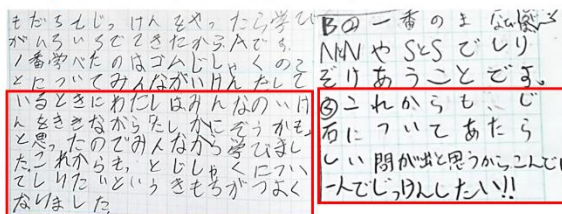 もだちとじっけんをやったら学び
がいろいろできたからAです。
1番学べたのはゴムじしゃくのこ
とについてみんながいけんだして
いるときにわたしはみんなのいけ
んをききながらたしかにそうかも。
と思ったのでみんなから学びまし
た。これからも、とじしゃくについ
てしりたいというきもちがつよく
なりました。
B②一番のまなびは
NとNやSとSでしり
ぞけあうことです。
③これからも、じ
石についてあたら
しい問が出と思うからこんどは
一人でじっけんしたい!!